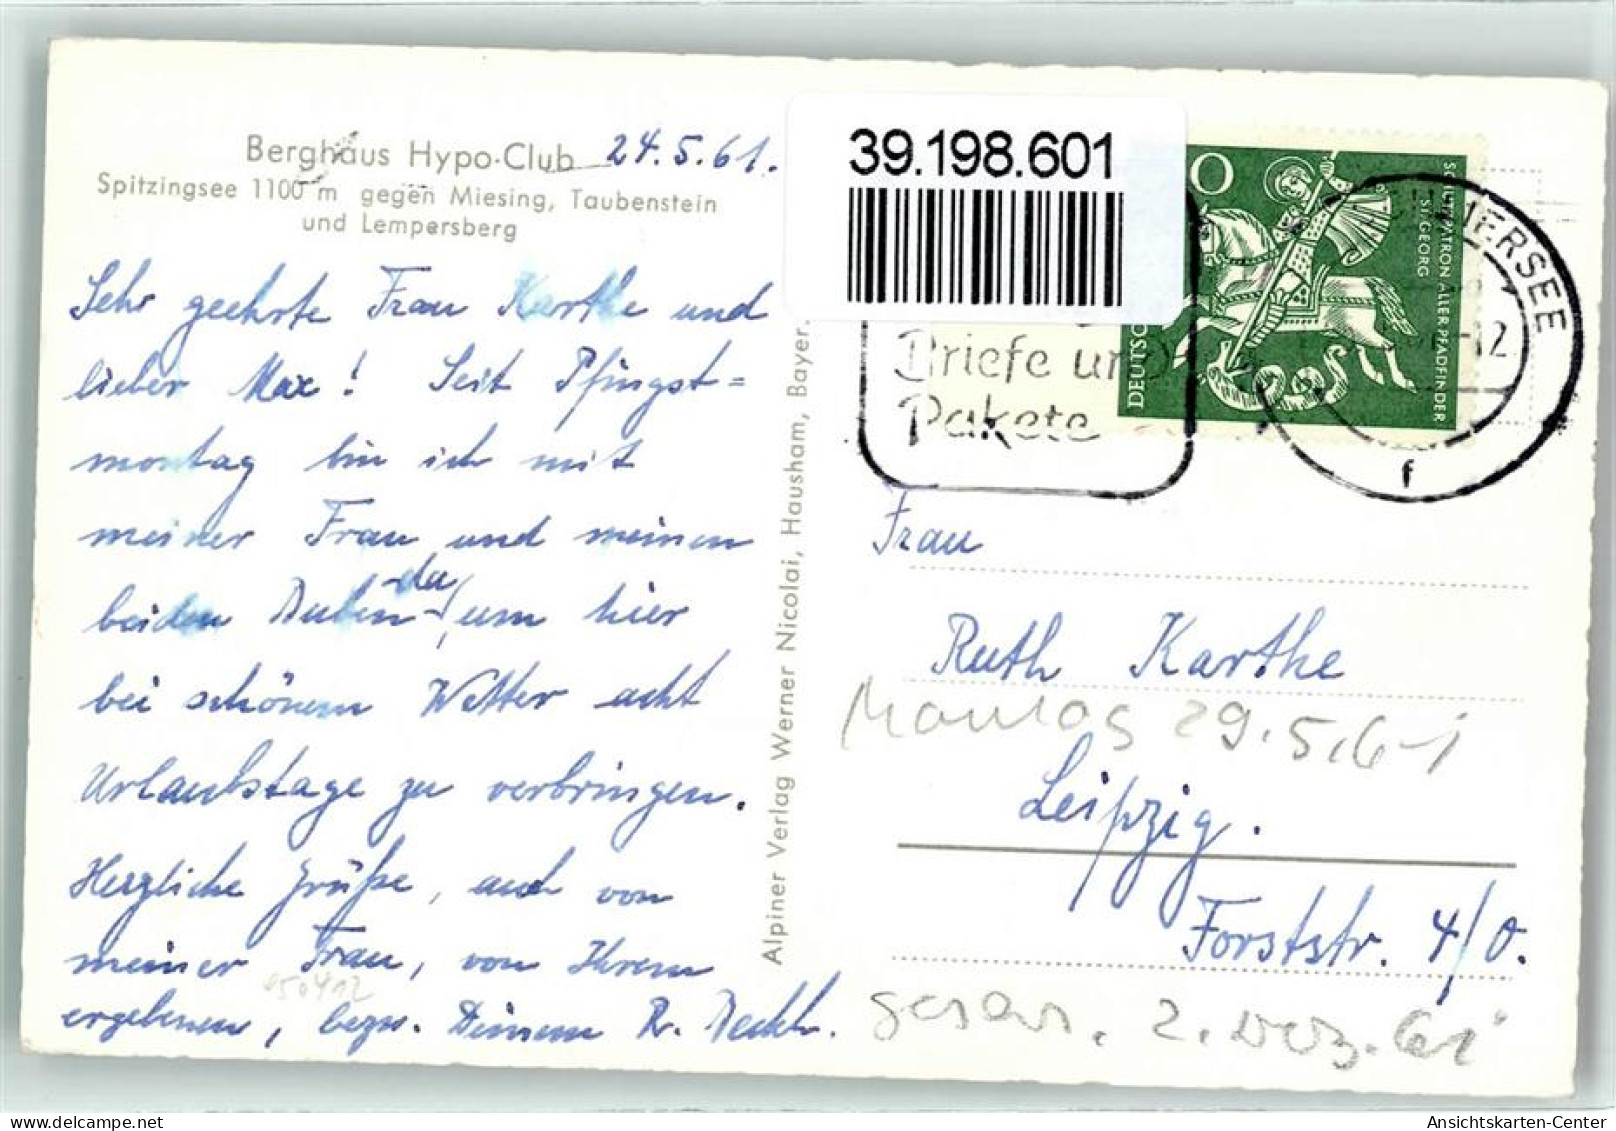 Berghaus Hypo-Club 24.5.61.
Spitzingsee 1100 m gegen Miesing, Taubenstein
und Lempersberg
Sehr geehrte Frau Karthe und
lieber Max! Seit Pfingst=
montag bin ich mit
meiner Frau und meinen
beiden Buben da, um hier
bei schönem Wetter acht
Urlaubstage zu verbringen.
Herzliche Grüße, auch von
meiner Frau, von Ihrem
ergebenen, bezw. Deinem R.
Alpiner Verlag Werner Nicolai, Hausham, Bayer.
39.198.601
Briefe und
Pakete
0
DEUTSC
SCHUTZPATRON ALLER PFADFINDER
ST. GEORG
IERSEE
-12
f
Frau
Ruth Karthe
Montag 29.5.61
Leipzig.
Forststr. 4/0.
2. Dez. 61
Ansichtskarten-Center